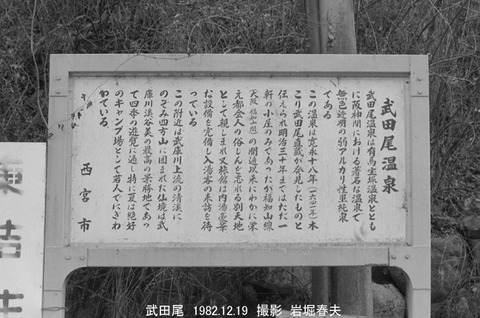 武田尾温泉
武田尾温泉は有馬宝塚温泉ととも
に阪神間における著名な温泉で
無色透明の弱アルカリ性単純泉
である
この温泉は寛永十八年(一六四一年)木
こり武田尾直蔵が発見したものと
伝えられ明治三十年まではただ一
軒の小屋のみであったが福知山線
大阪 福知山間の開通以来にわかに栄
え都会人の俗じんを忘れる別天地
として親しまれ又旅館は内湯豪華
な設備を完備し入湯客の来訪を待
っている
この附近は武庫川上流の清渓に
のぞみ四方山に囲まれた仙境は武
庫川渓谷美の最高の景勝地であっ
て四季の遊覧に適し特に夏は絶好
のキャンプ場として若人でにぎわ
わている
西宮市
東
武田尾 1982.12.19 撮影 岩堀春夫